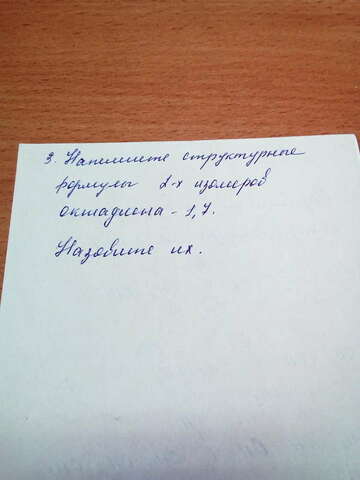 3. Напишите структурные
формулы 2-х изомеров
октадиена - 1,7.
Назовите их.